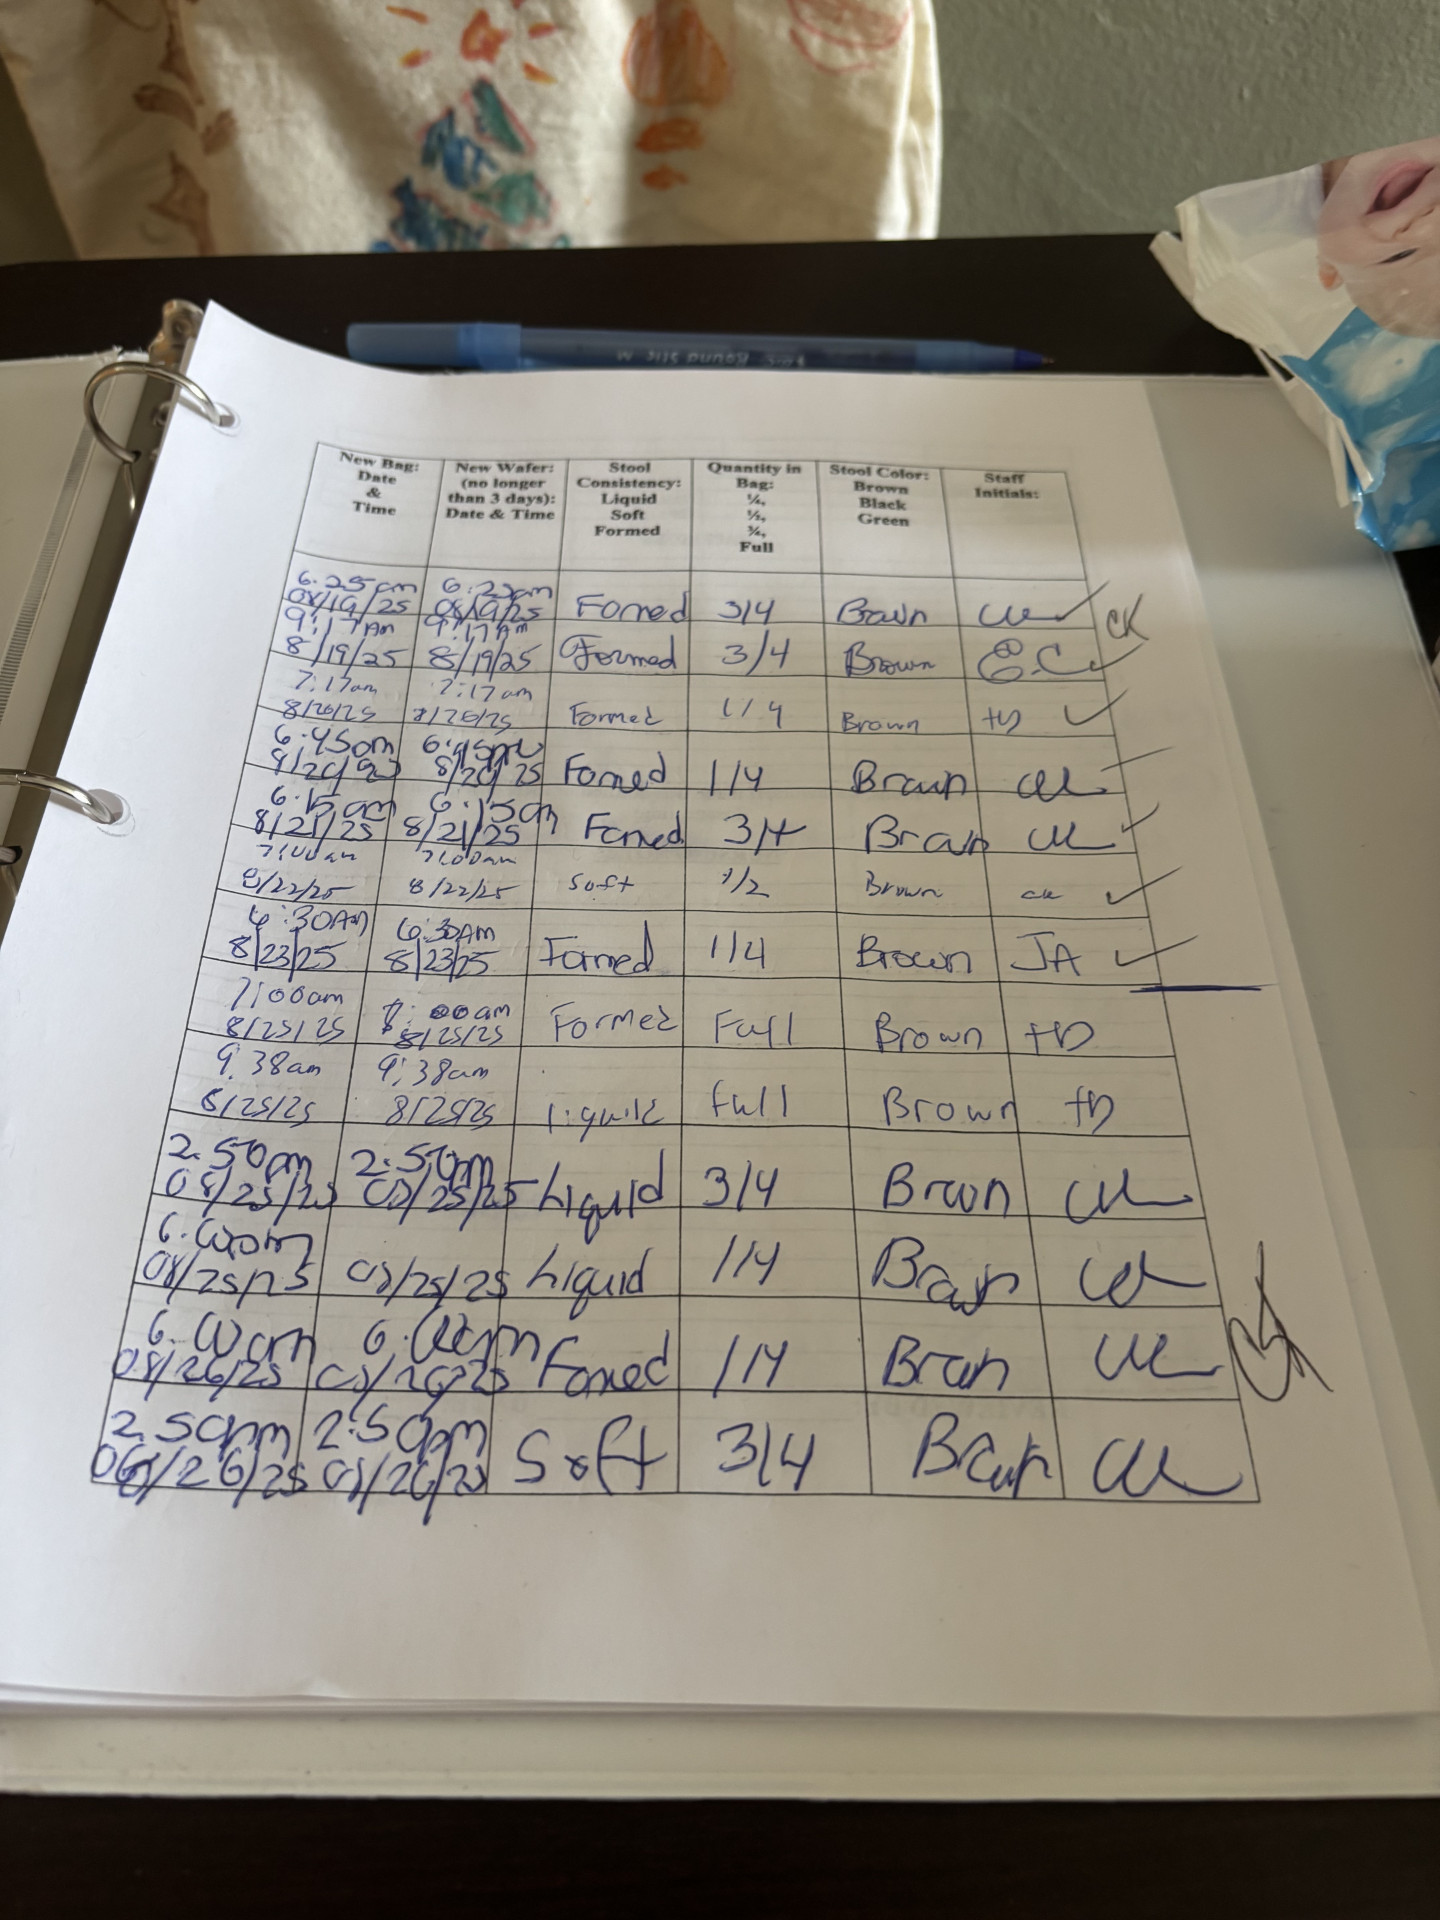 Round Stic M
New Bag: Date & Time | New Wafer: (no longer than 3 days): Date & Time | Stool Consistency: Liquid Soft Formed | Quantity in Bag: ¼, ½, ¾, Full | Stool Color: Brown Black Green | Staff Initials:
6:25am 08/19/25 | 6:25am 08/19/25 | Fomed | 3/4 | Brown
CK
9:17Am 8/19/25 | 9:17Am 8/19/25 | Formed | 3/4 | Brown | E.C
7:17am 8/20/25 | 7:17am 8/20/25 | Formed | 1/4 | Brown | tD
6:45am 8/20/25 | 8/20/25 | Fomed | 1/4 | Brown
6:15am 8/21/25 | 6:15am 8/21/25 | Fomed | 3/4 | Brown
7:00am 8/22/25 | 7:00am 8/22/25 | Soft | 1/2 | Brown | CK
6:30AM 8/23/25 | 6:30AM 8/23/25 | Formed | 1/4 | Brown | JA
7:00am 8/25/25 | 7:00am 8/25/25 | Formed | Full | Brown | tD
9:38am 8/25/25 | 9:38am 8/25/25 | liquid | full | Brown | tD
2:50pm 08/25/25 | 2:50pm 08/25/25 | Liquid | 3/4 | Brown
6:00pm 08/25/25 | 08/25/25 | Liquid | 1/4 | Brown
6:00am 08/26/25 | 6:00am 08/26/25 | Fomed | 1/4 | Brown
2:50pm 08/26/25 | 2:50pm 08/26/25 | Soft | 3/4 | Brown